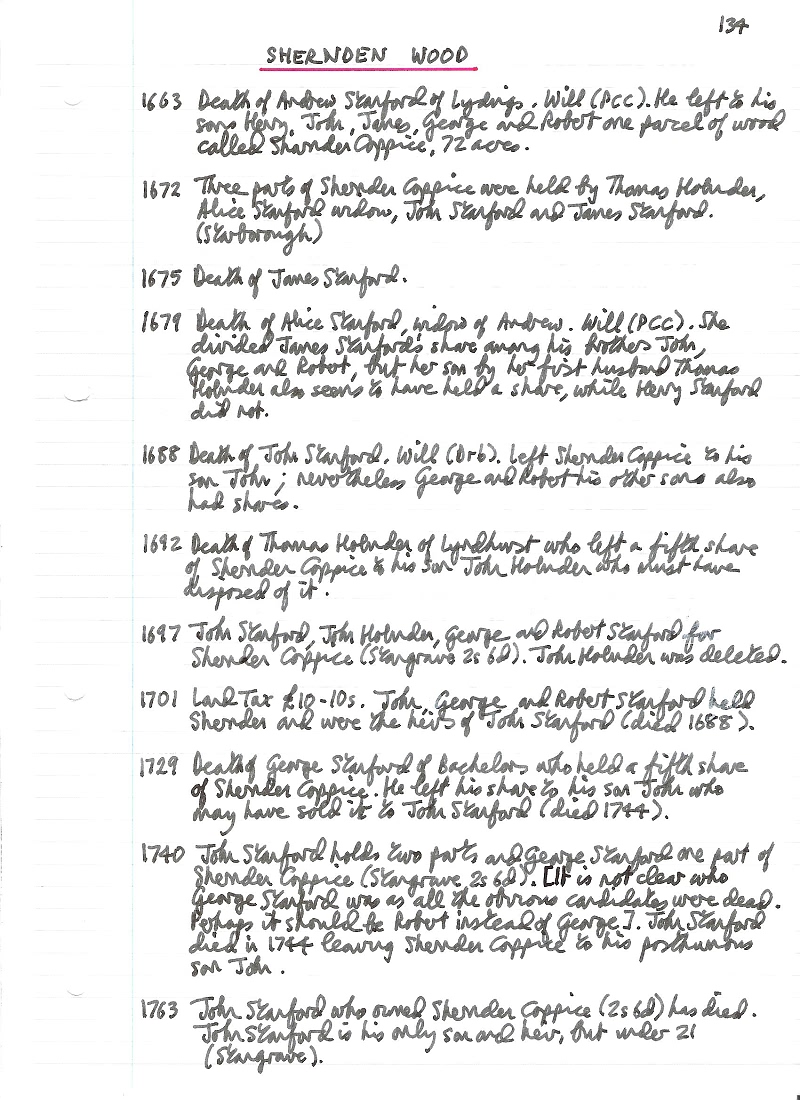 134
SHERNDEN WOOD
1663 Death of Andrew Stanford of Lydings. Will (PCC). He left to his
sons Henry, John, James, George and Robert one parcel of wood
called Sharnder Coppice, 72 acres.
1672 Three parts of Shernden Coppice were held by Thomas Holmden,
Alice Stanford widow, John Stanford and James Stanford.
(Starborough)
1675 Death of James Stanford.
1679 Death of Alice Stanford, widow of Andrew. Will (PCC). She
divided James Stanford's share among his brothers John,
George and Robert, but her son by her first husband Thomas
Holmden also seems to have held a share, while Henry Stanford
did not.
1688 Death of John Stanford. Will (Drb). Left Shernden Coppice to his
son John; nevertheless George and Robert his other sons also
had shares.
1692 Death of Thomas Holmden of Lyndhurst who left a fifth share
of Shernden Coppice to his son John Holmden who must have
disposed of it.
1697 John Stanford, John Holmden, George and Robert Stanford for
Shernden Coppice (Stangrave 2s 6d). John Holmden was deleted.
1701 Land Tax £10-10s. John, George, and Robert Stanford held
Shernden and were the heirs of John Stanford (died 1688).
1729 Death of George Stanford of Bachelors who held a fifth share
of Shernden Coppice. He left his share to his son John who
may have sold it to John Stanford (died 1744).
1740 John Stanford holds two parts and George Stanford one part of
Shernden Coppice (Stangrave 2s 6d). [It is not clear who
George Stanford was as all the obvious candidates were dead.
Perhaps it should be Robert instead of George]. John Stanford
died in 1744 leaving Shernden Coppice to his posthumous
son John.
1763 John Stanford who owned Shernden Coppice (2s 6d) has died.
John Stanford is his only son and heir, but under 21
(Stangrave).